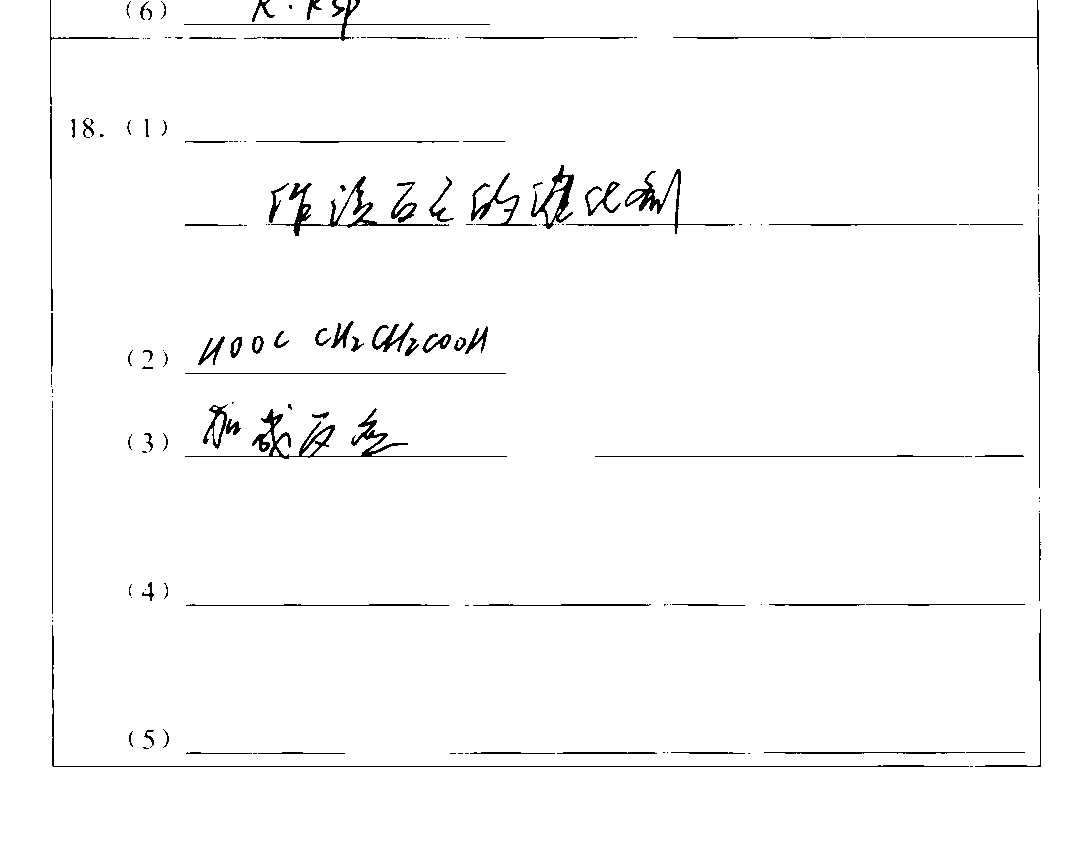 (6) K·Ksp
18. (1)
作该反应的催化剂
(2) HOOC CH₂CH₂COOH
(3) 加成反应
(4)
(5)